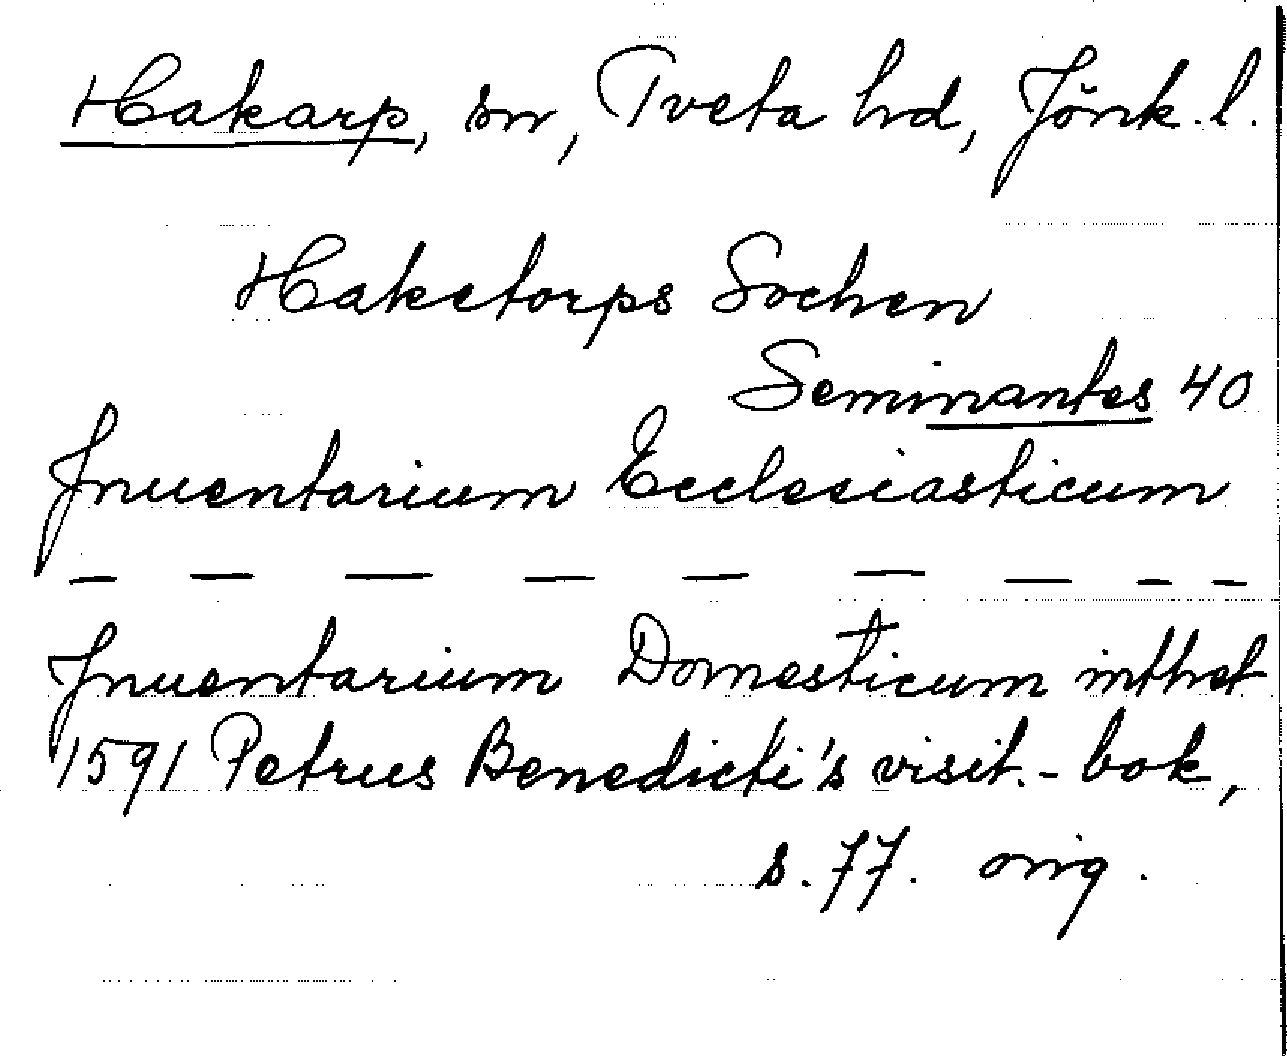 Hakarp, sn, Tveta hd, Jönk. l.
Haketorps Sochen
Seminantes 40
Jnuentarium Ecclesiasticum
— — — — — — — — —
Jnuentarium Domesticum inthet
1591 Petrus Benedicti's visit.-bok,
s. 77. orig.